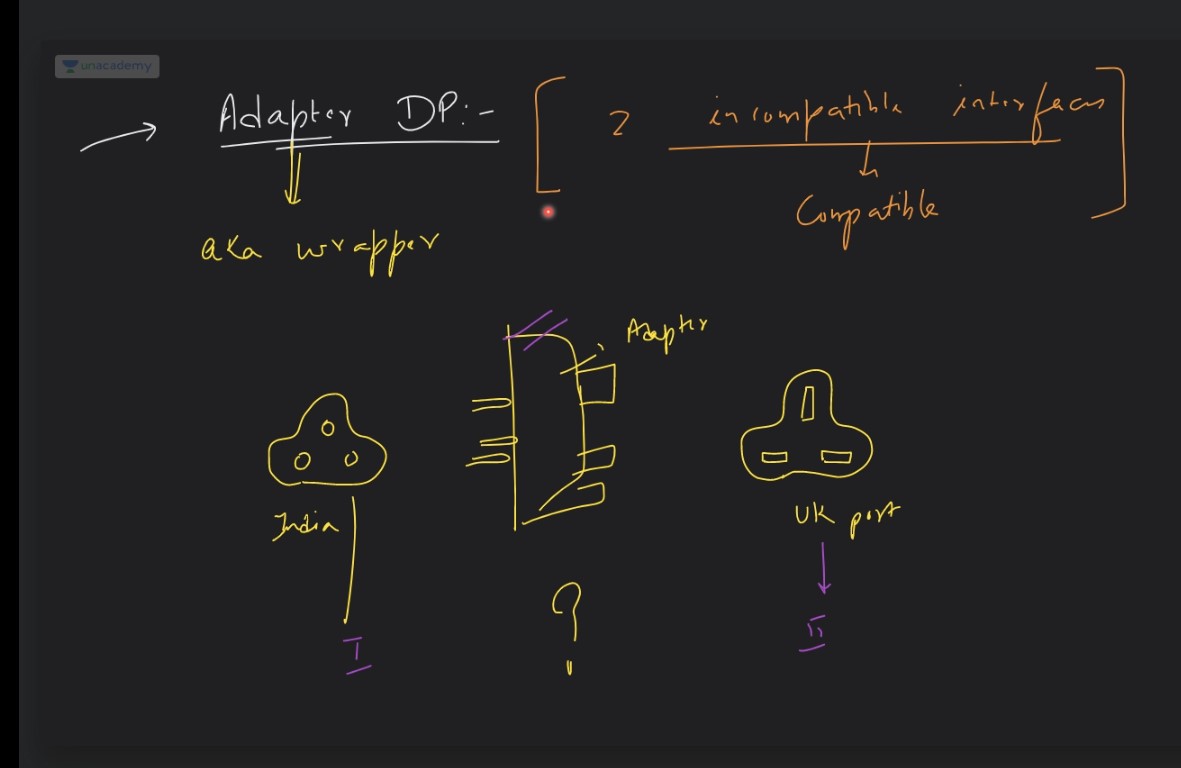 unacademy
Adapter DP:- [ 2 incompatible interfaces ]
Compatible
aka wrapper
Adapter
India
UK port
I
II
?